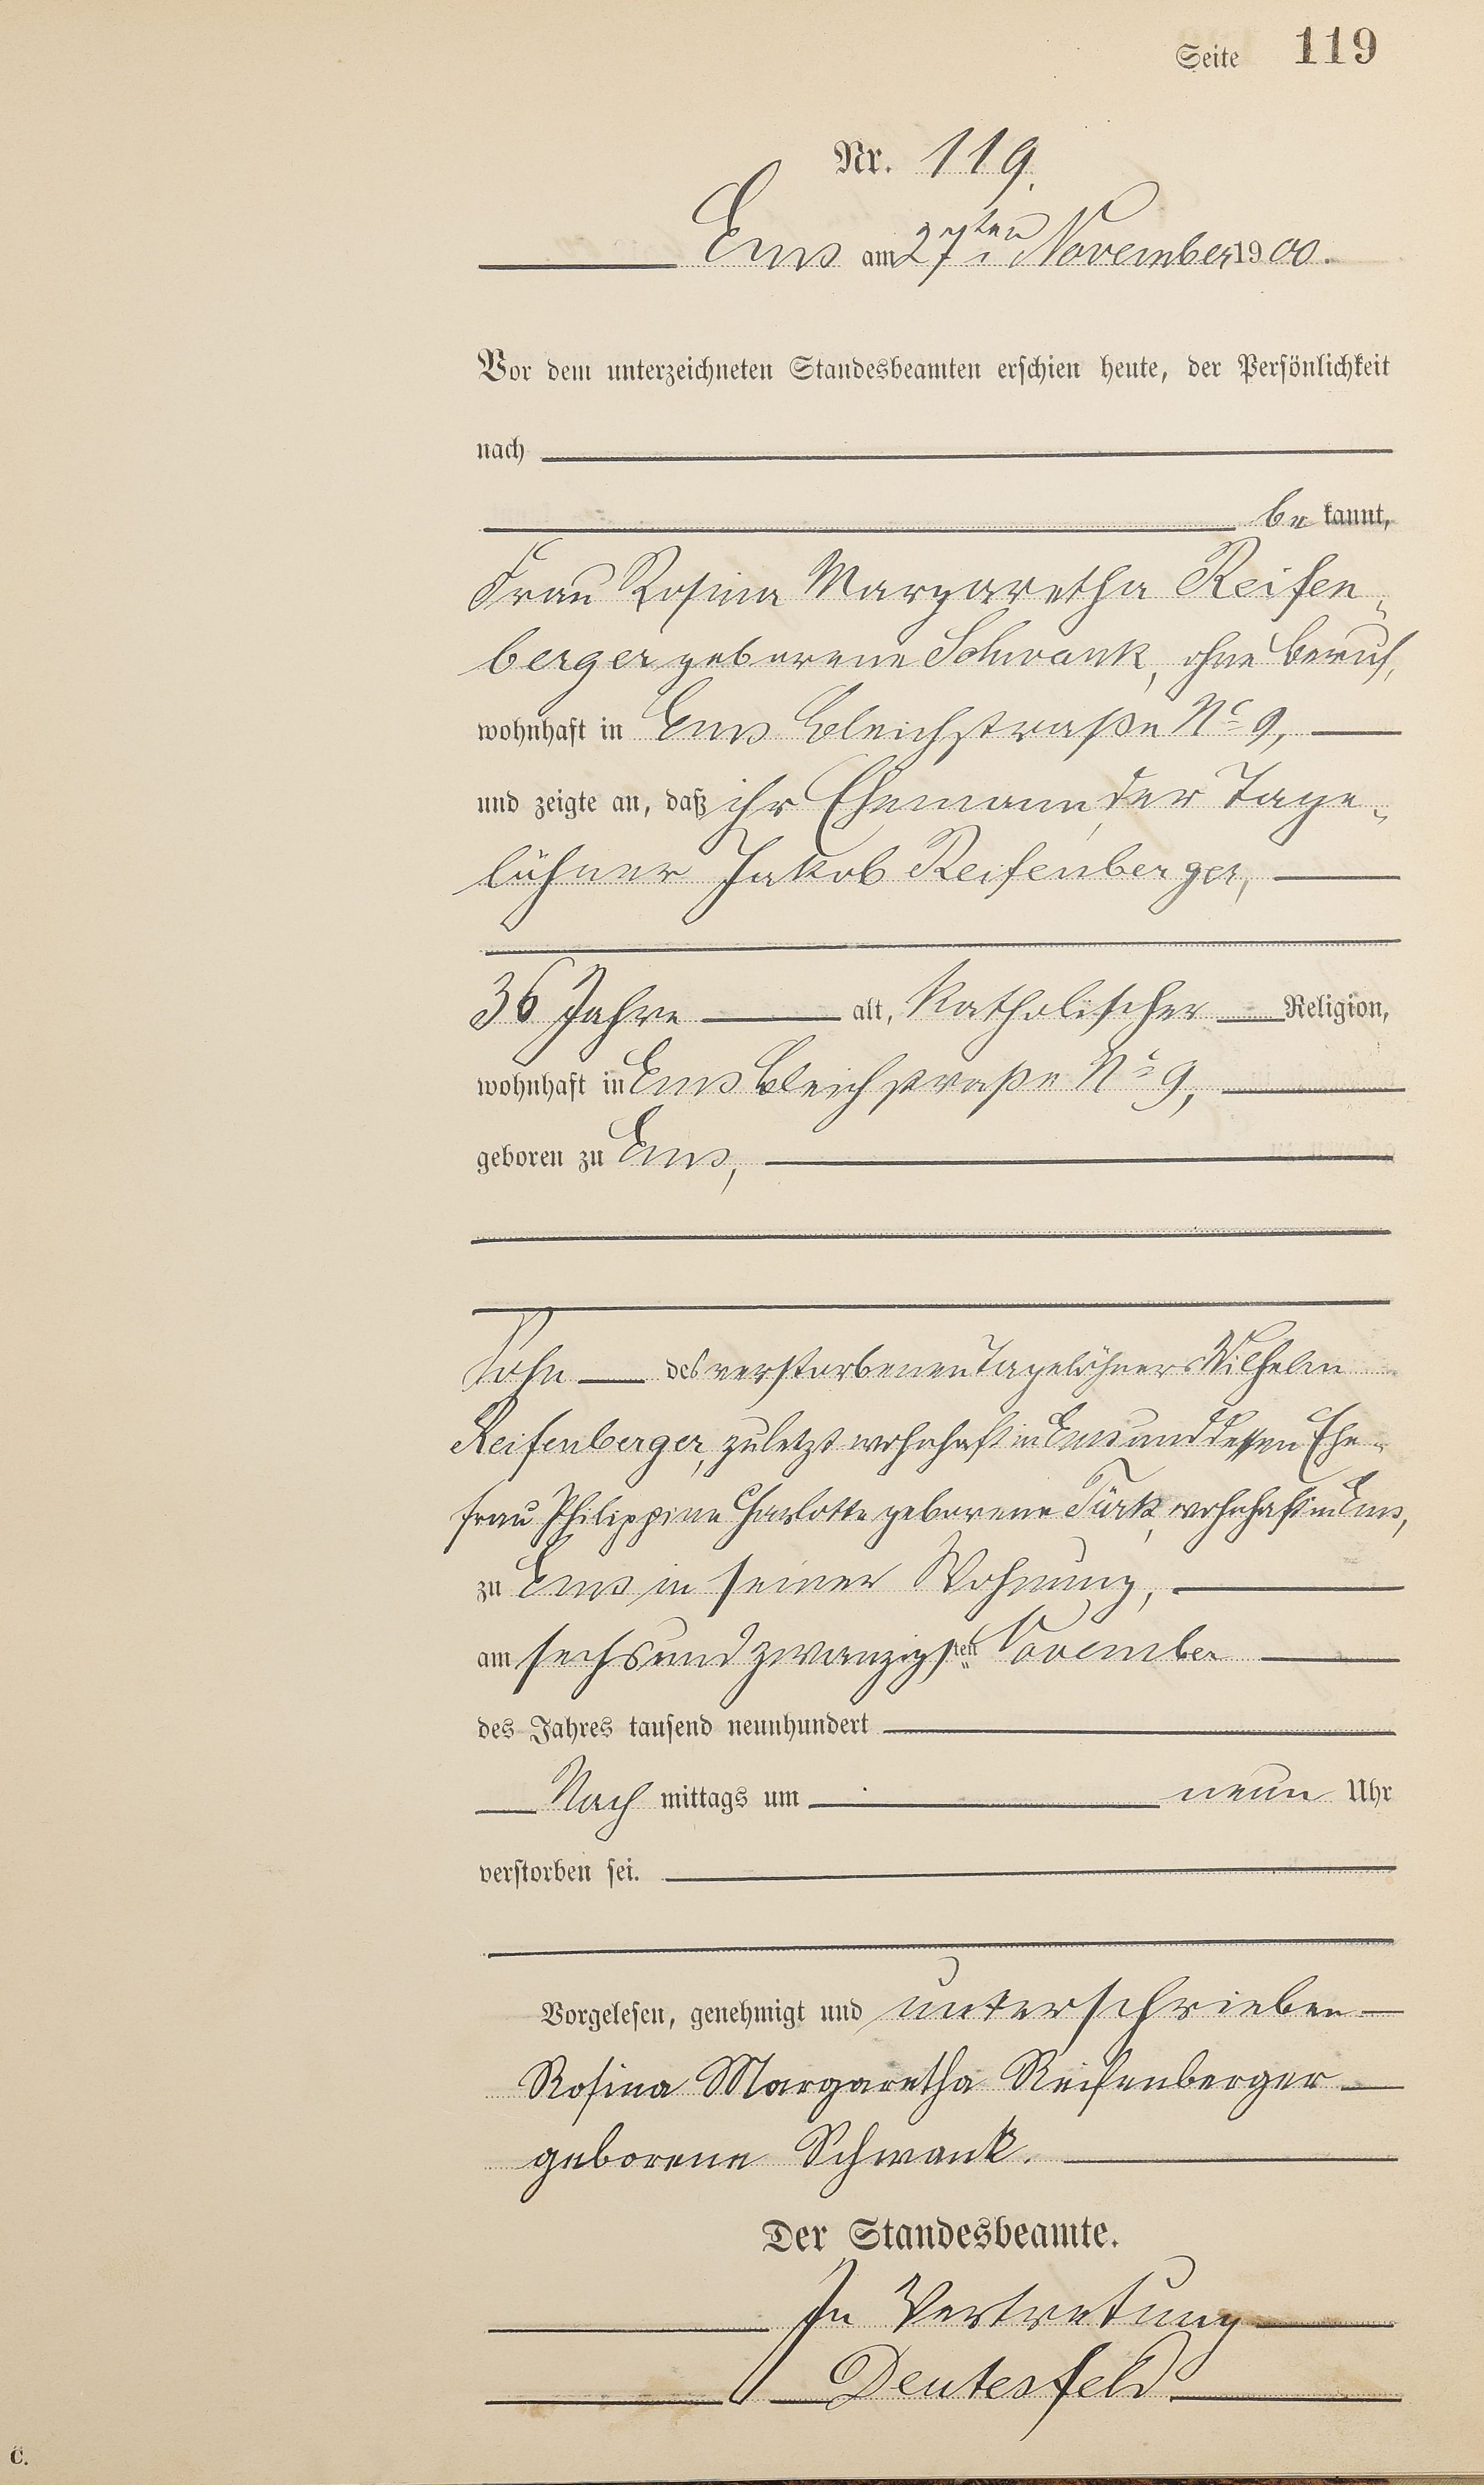 Seite 119
Nr. 119.
Ems am 27ten November 1900.
Vor dem unterzeichneten Standesbeamten erschien heute, der Persönlichkeit
nach
be kannt,
Frau Rosina Margaretha Reifen-
berger geborene Schwank, ohne Beruf,
wohnhaft in Ems Bleichstraße No 9,
und zeigte an, daß ihr Ehemann, der Tage-
löhner Jakob Reifenberger,
36 Jahre alt, Katholischer Religion,
wohnhaft in Ems Bleichstraße No 9,
geboren zu Ems,
Sohn des verstorbenen Tagelöhners Wilhelm
Reifenberger, zuletzt wohnhaft in Ems und dessen Ehe-
frau Philippine Charlotte geborene Türk, wohnhaft in Ems,
zu Ems in seiner Wohnung,
am sechsundzwanzigsten November
des Jahres tausend neunhundert
Nach mittags um neun Uhr
verstorben sei.
Vorgelesen, genehmigt und unterschrieben
Rosina Margaretha Reifenberger
geborene Schwank.
Der Standesbeamte.
In Vertretung
Deutesfeld
C.